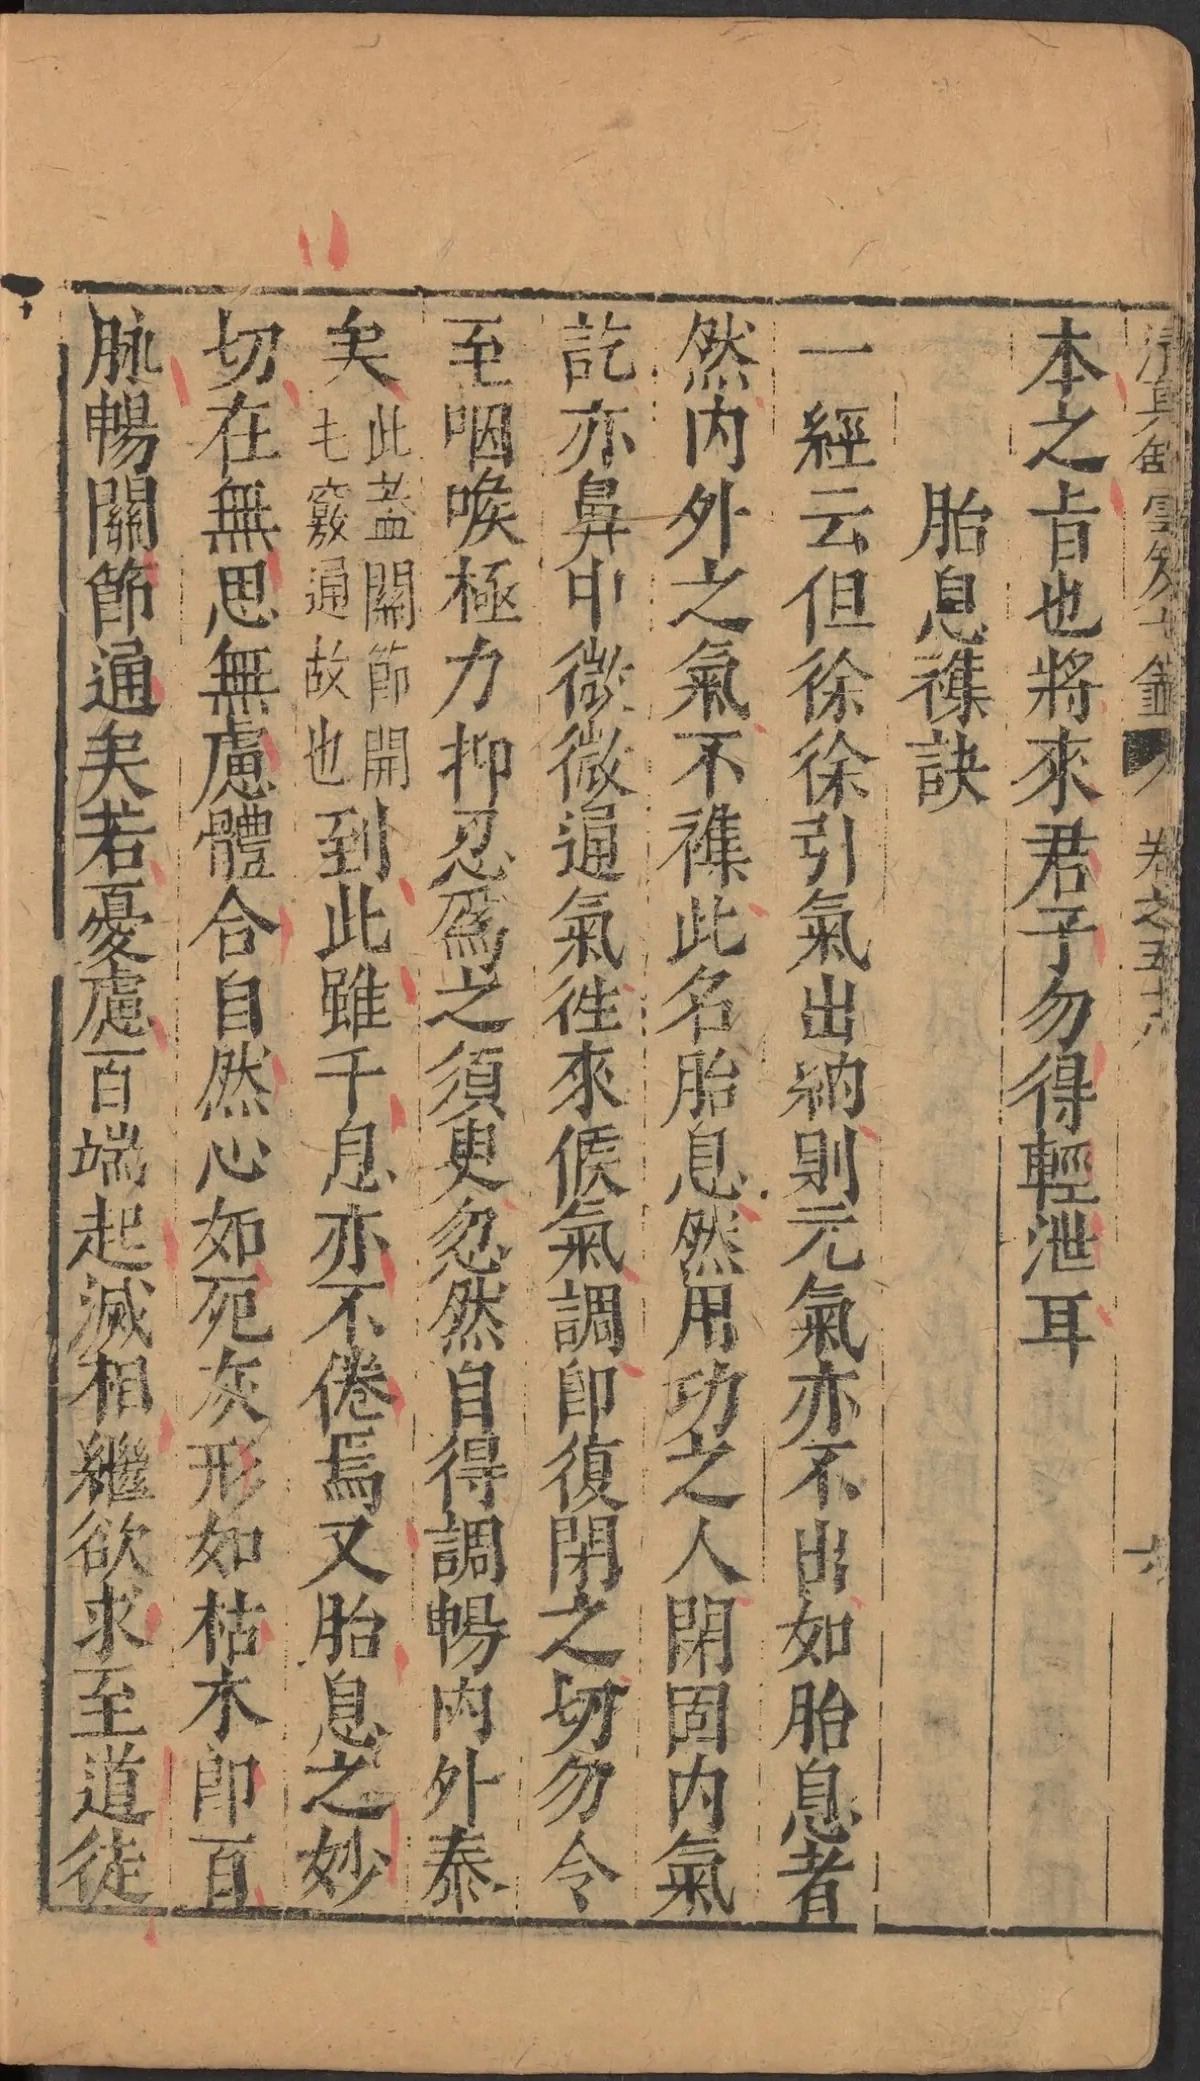 清真舘雲笈七籤 卷之五十八 六
本之㫖也將來君子勿得輕泄耳
胎息襍訣
一經云但徐徐引氣出納則元氣亦不出如胎息者
然内外之氣不襍此名胎息然用功之人閉固内氣
訖亦鼻中微微通氣徃來候氣調即復閉之切勿令
至咽喉極力抑忍爲之須㬰忽然自得調暢内外泰
矣此蓋關節開毛竅通故也到此雖千息亦不倦焉又胎息之妙
切在無思無慮體合自然心如死灰形如枯木即百
脉暢關節通矣若憂慮百端起滅相繼欲求至道徒